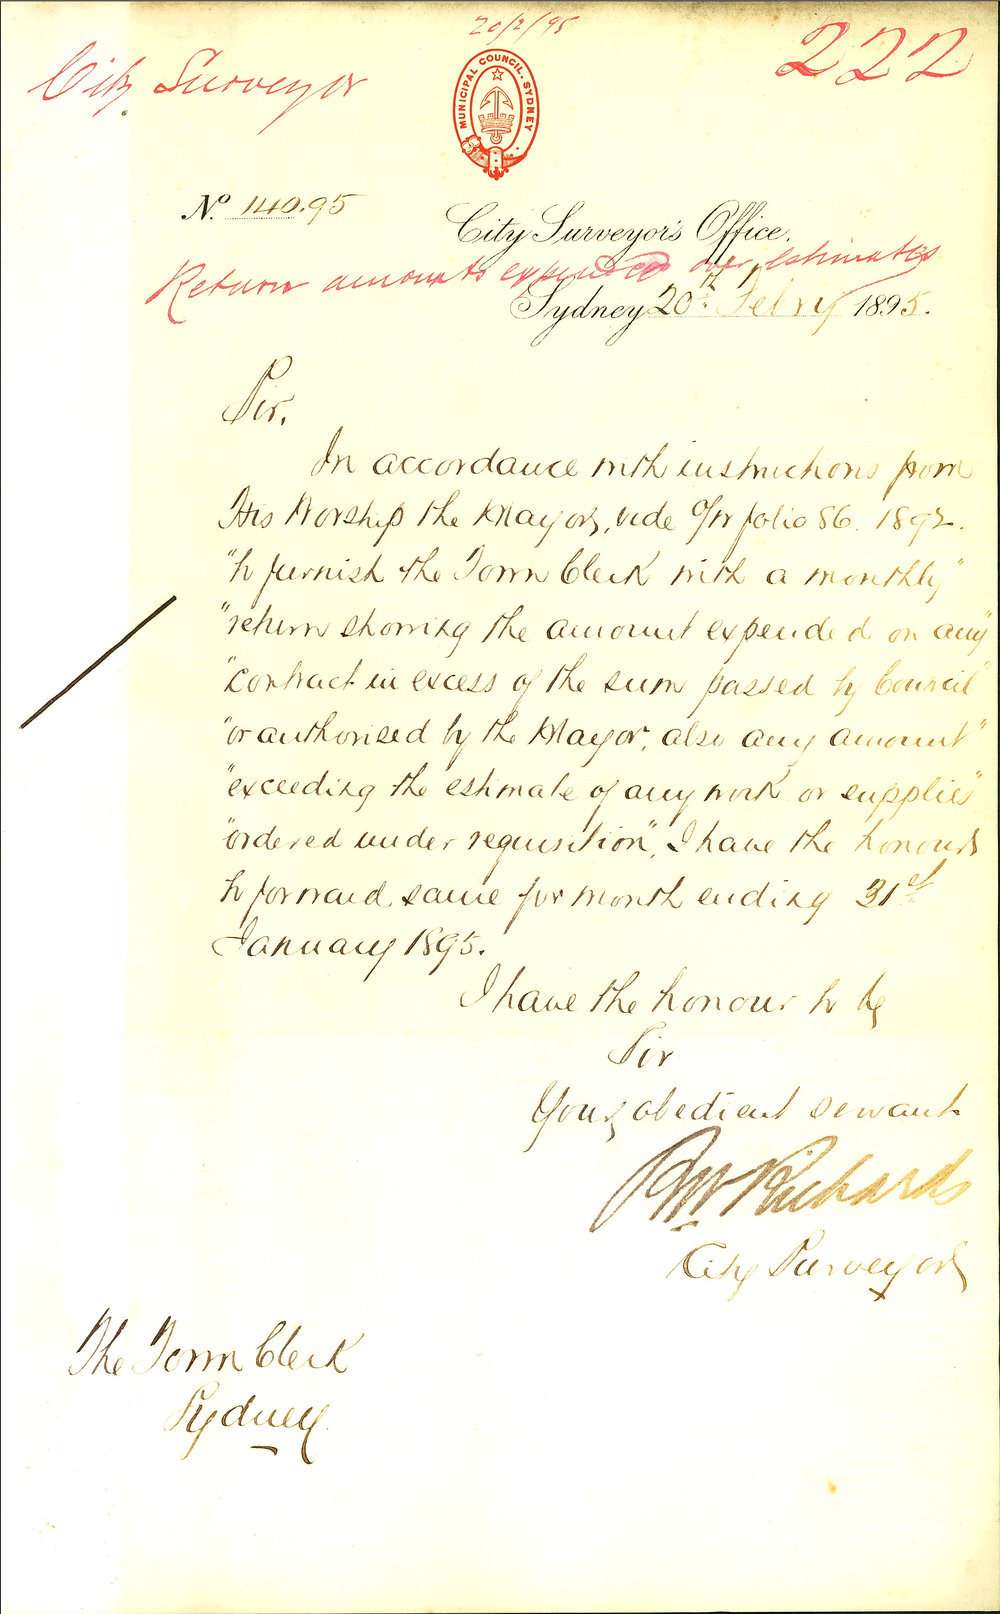 20/2/95
222
City Surveyor
MUNICIPAL COUNCIL. SYDNEY
No. 140.95
City Surveyor's Office.
Return amounts expended over estimates
Sydney 20th Febry 1895.
Sir,
In accordance with instructions from
His Worship the Mayor, vide folio 86. 1892.
"to furnish the Town Clerk with a monthly"
"return showing the amount expended on any"
"contract in excess of the sum passed by Council"
"or authorised by the Mayor, also any amount"
"exceeding the estimate of any work or supplies"
"ordered under requisition", I have the honour
to forward same for month ending 31st
January 1895.
I have the honour to be
Sir
Your obedient servant
RW Richards
City Surveyor
The Town Clerk
Sydney